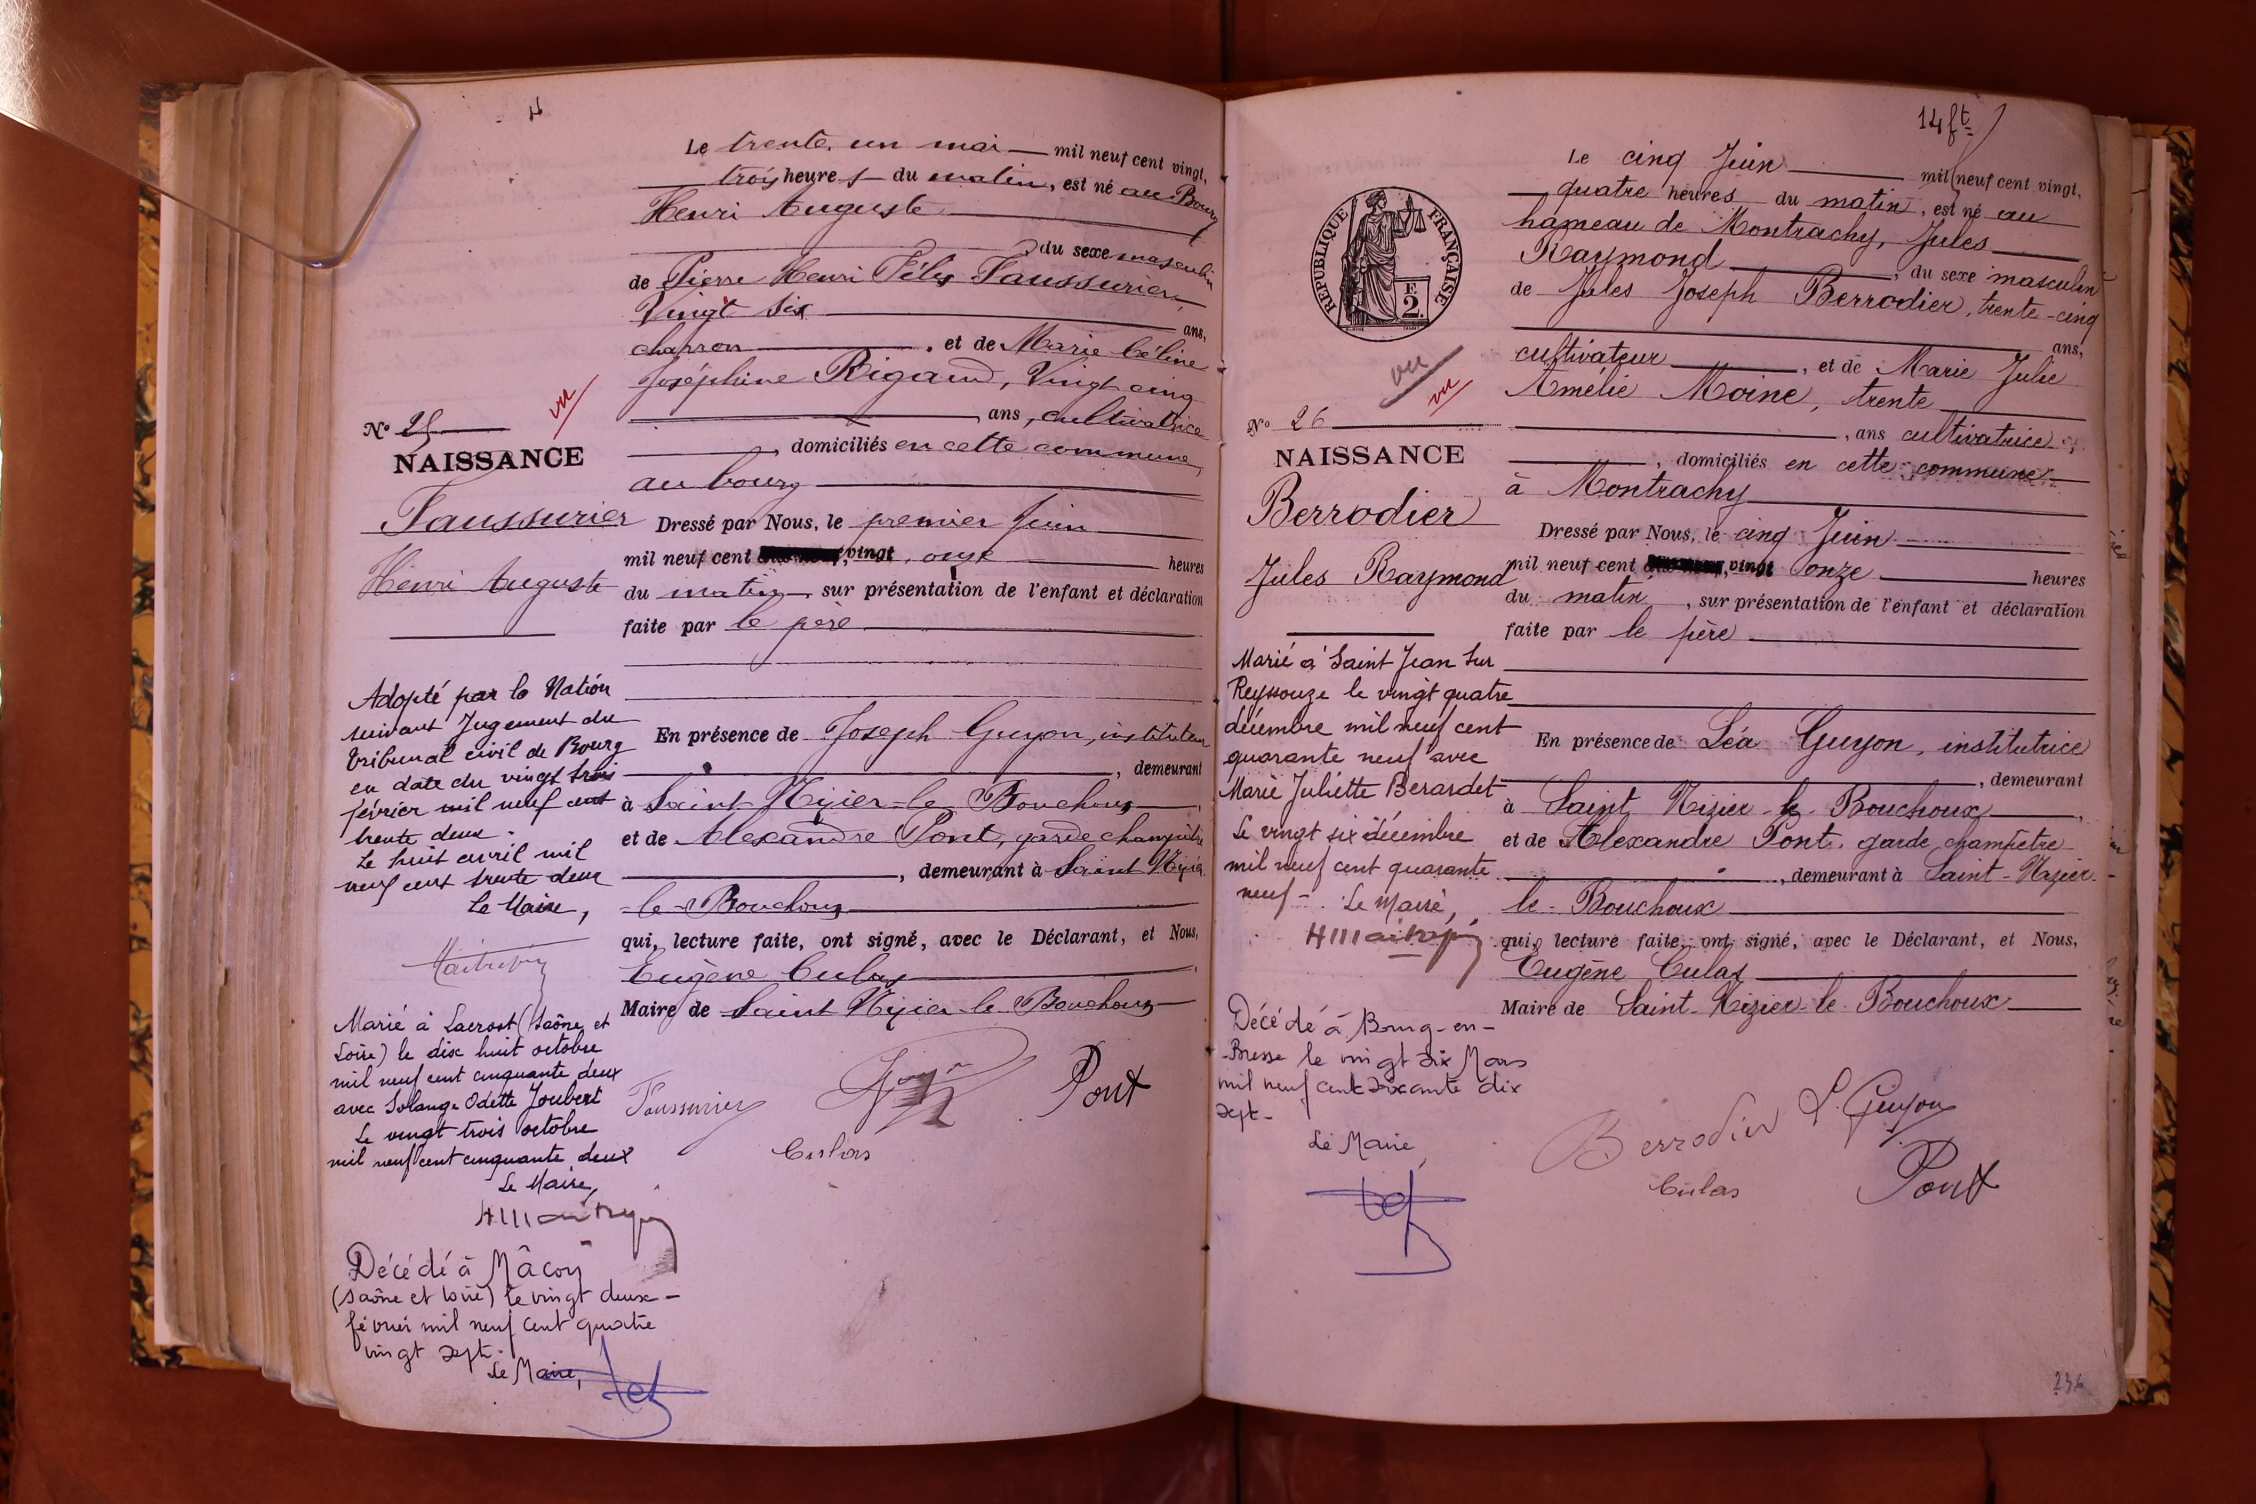 Le trente un mai mil neuf cent vingt,
trois heures du matin, est né au Bourg
Henri Auguste
du sexe masculin
de Pierre Henri Félix Faussurier,
Vingt six ans,
charron, et de Marie Céline
Joséphine Rigaud, Vingt cinq
ans, cultivatrice
, domiciliés en cette commune,
au bourg
Dressé par Nous, le premier Juin
mil neuf cent vingt, onze heures
du matin, sur présentation de l'enfant et déclaration
faite par le père
En présence de Joseph Guyon, instituteur
, demeurant
à Saint Nizier-le-Bouchoux,
et de Alexandre Pont, garde champêtre
, demeurant à Saint Nizier
-le-Bouchoux
qui, lecture faite, ont signé, avec le Déclarant, et Nous,
Eugène Culas,
Maire de Saint Nizier-le-Bouchoux
Faussurier Guyon Pont
Culas
vu
N° 25
NAISSANCE
Faussurier
Henri Auguste
Adopté par la Nation
suivant Jugement du
tribunal civil de Bourg
en date du vingt trois
février mil neuf cent
trente deux.
Le huit avril mil
neuf cent trente deux
Le Maire,
Marié à Lacrost (Saône et
Loire) le dix huit octobre
mil neuf cent cinquante deux
avec Solange Odette Joubert
Le vingt trois octobre
mil neuf cent cinquante deux
Le Maire,
Décédé à Mâcon
(Saône et Loire) le vingt deux-
février mil neuf cent quatre
vingt sept.
Le Maire,
14 ft
Le cinq Juin mil neuf cent vingt,
quatre heures du matin, est né au
hameau de Montrachy, Jules
Raymond, du sexe masculin
de Jules Joseph Berrodier, trente-cinq
ans,
cultivateur, et de Marie Julie
Amélie Moine, trente
, ans cultivatrice,
, domiciliés en cette commune
à Montrachy
Dressé par Nous, le cinq Juin
mil neuf cent vingt onze heures
du matin, sur présentation de l'enfant et déclaration
faite par le père
En présence de Léa Guyon, institutrice
, demeurant
à Saint Nizier-le-Bouchoux,
et de Alexandre Pont, garde champêtre
, demeurant à Saint-Nizier-
le-Bouchoux
qui, lecture faite, ont signé, avec le Déclarant, et Nous,
Eugène Culas
Maire de Saint-Nizier-le-Bouchoux
Berrodier L. Guyon
Culas Pont
RÉPUBLIQUE FRANÇAISE
F.
2.
vu
vu
N° 26
NAISSANCE
Berrodier
Jules Raymond
Marié à Saint Jean sur
Reyssouze le vingt quatre
décembre mil neuf cent
quarante neuf avec
Marie Juliette Berardet
Le vingt six décembre
mil neuf cent quarante
neuf -. Le Maire,
Décédé à Bourg-en-
-Bresse le vingt six Mars
mil neuf cent soixante dix
sept-
Le Maire,